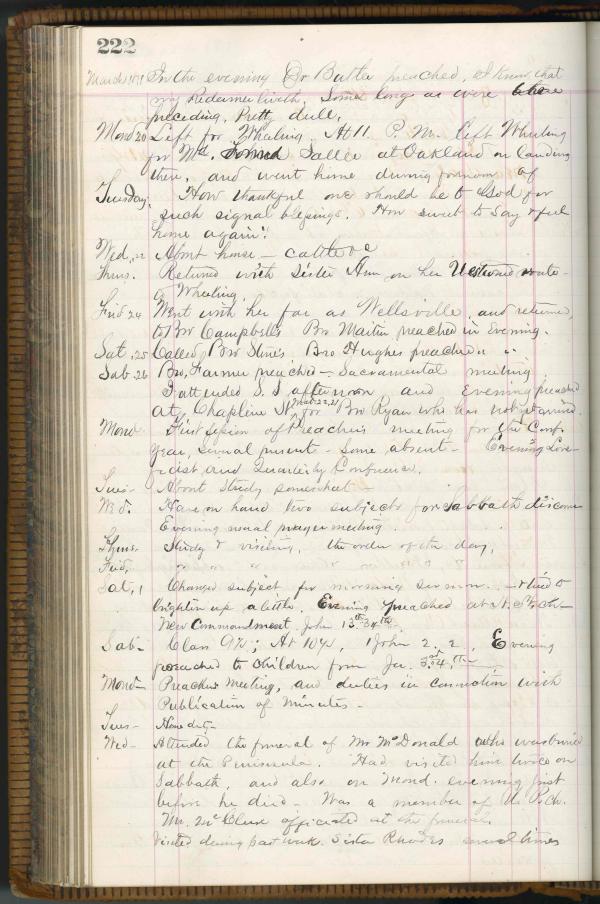 222
March 1871 In the evening Dr Butler preached, I know that
my Redeemer liveth. Some long as were those
preceding, Pretty dull,
Mond 20 Left for Wheeling. At 11 P. M. left Wheeling
for Md. Sallie at Oakland on landing
there, and went home during forenoon of
Tuesday. How thankful one should be to God for
such signal blessings. How sweet to say & feel
home again!
Wed, 22 About house —
Thurs. Returned with Sister Ann on her Westward route
to Wheeling.
Frid 24 Went with her far as Wellsville, and returned,
to Bro Campbells Bro Martin preached in Evening.
Sat, 25 Called, Bro Stines, Bro Hughes preached " "
Sab 26 Bro, Farmer preached — Sacramental meeting
I attended S. S afternoon and Evening preached
at Chapline St for Bro Ryan who has not yet arrived.
Mond First session of Preachers meeting for this Conf.
Year, several present — some absent — Evening Love-
feast and Quarterly Conference.
Tues— About Study somewhat —
Wed. Have on hand two subjects for Sabbath discourse
Evening usual prayer meeting.
Thurs. Study & visiting, the order of the day,
Frid, " " " " " "
Sat, 1 Changed subject for morning sermon — tried to
brighten up a little. Evening preached at N. St. Ch—
New Commandment. John 13th 34th
Sab— Class 9½; At 10½, 1 John 2, 2, Evening
preached to children from Jer. 3rd 4th
Mond— Preachers Meeting, and duties in connection with
Publication of Minutes —
Tues— Home duty—
Wed— Attended the funeral of Mr McDonald who was buried
at the Peninsula. Had visited him twice on
Sabbath, and also on Mond. evening just
before he died — Was a member of U. P. Ch.
Mr. officiated at the funeral,
Visited during past week Sister Rhodes several times